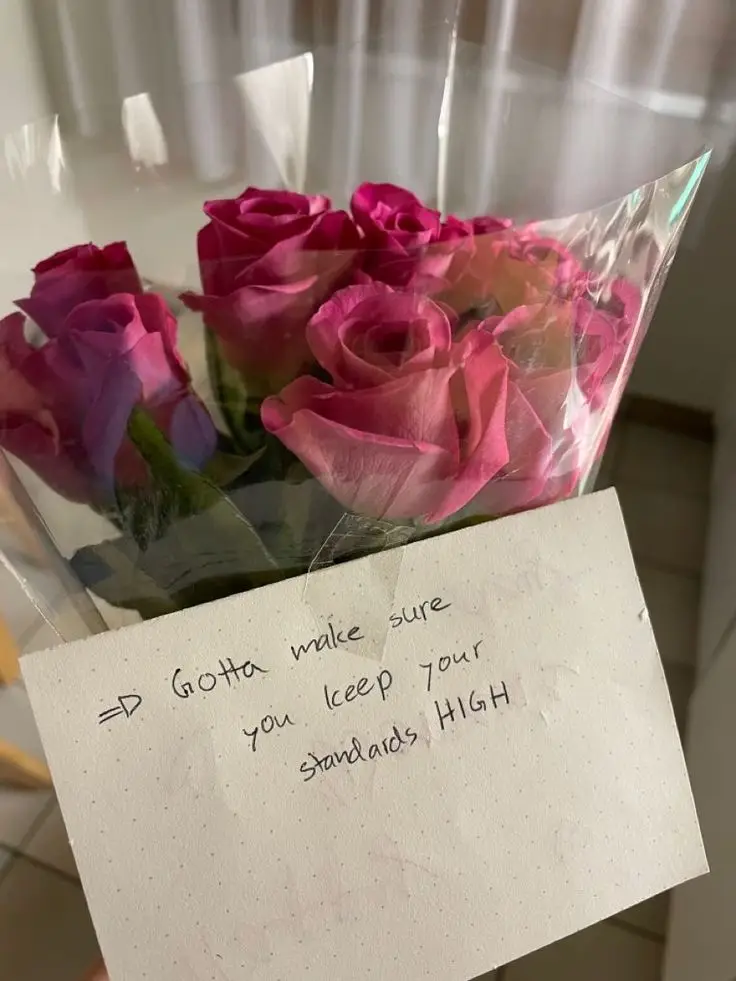 ⇒ Gotta make sure
you keep your
standards HIGH